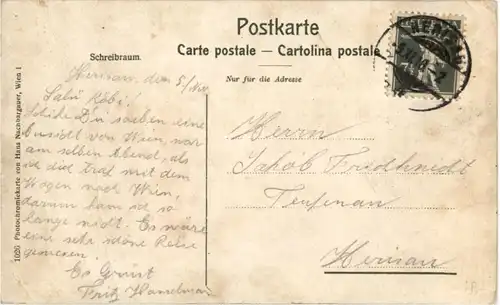 Postkarte
Carte postale — Cartolina postale
Schreibraum.
Nur für die Adresse
1020 Photochromiekarte von Hans Nachbargauer, Wien I
Herisau, den 5/
Salü Köbi!
schicke Dir soeben eine
von Wien, war
am selben Abend, als
ich dich traf mit dem
Wagen nach Wien,
darum kam ich so
lange nicht. Es wäre
eine sehr schöne Reise
gewesen.
Es Grüsst
Fritz
HERISAU
Herrn
Jakob
Teufenau
Herisau